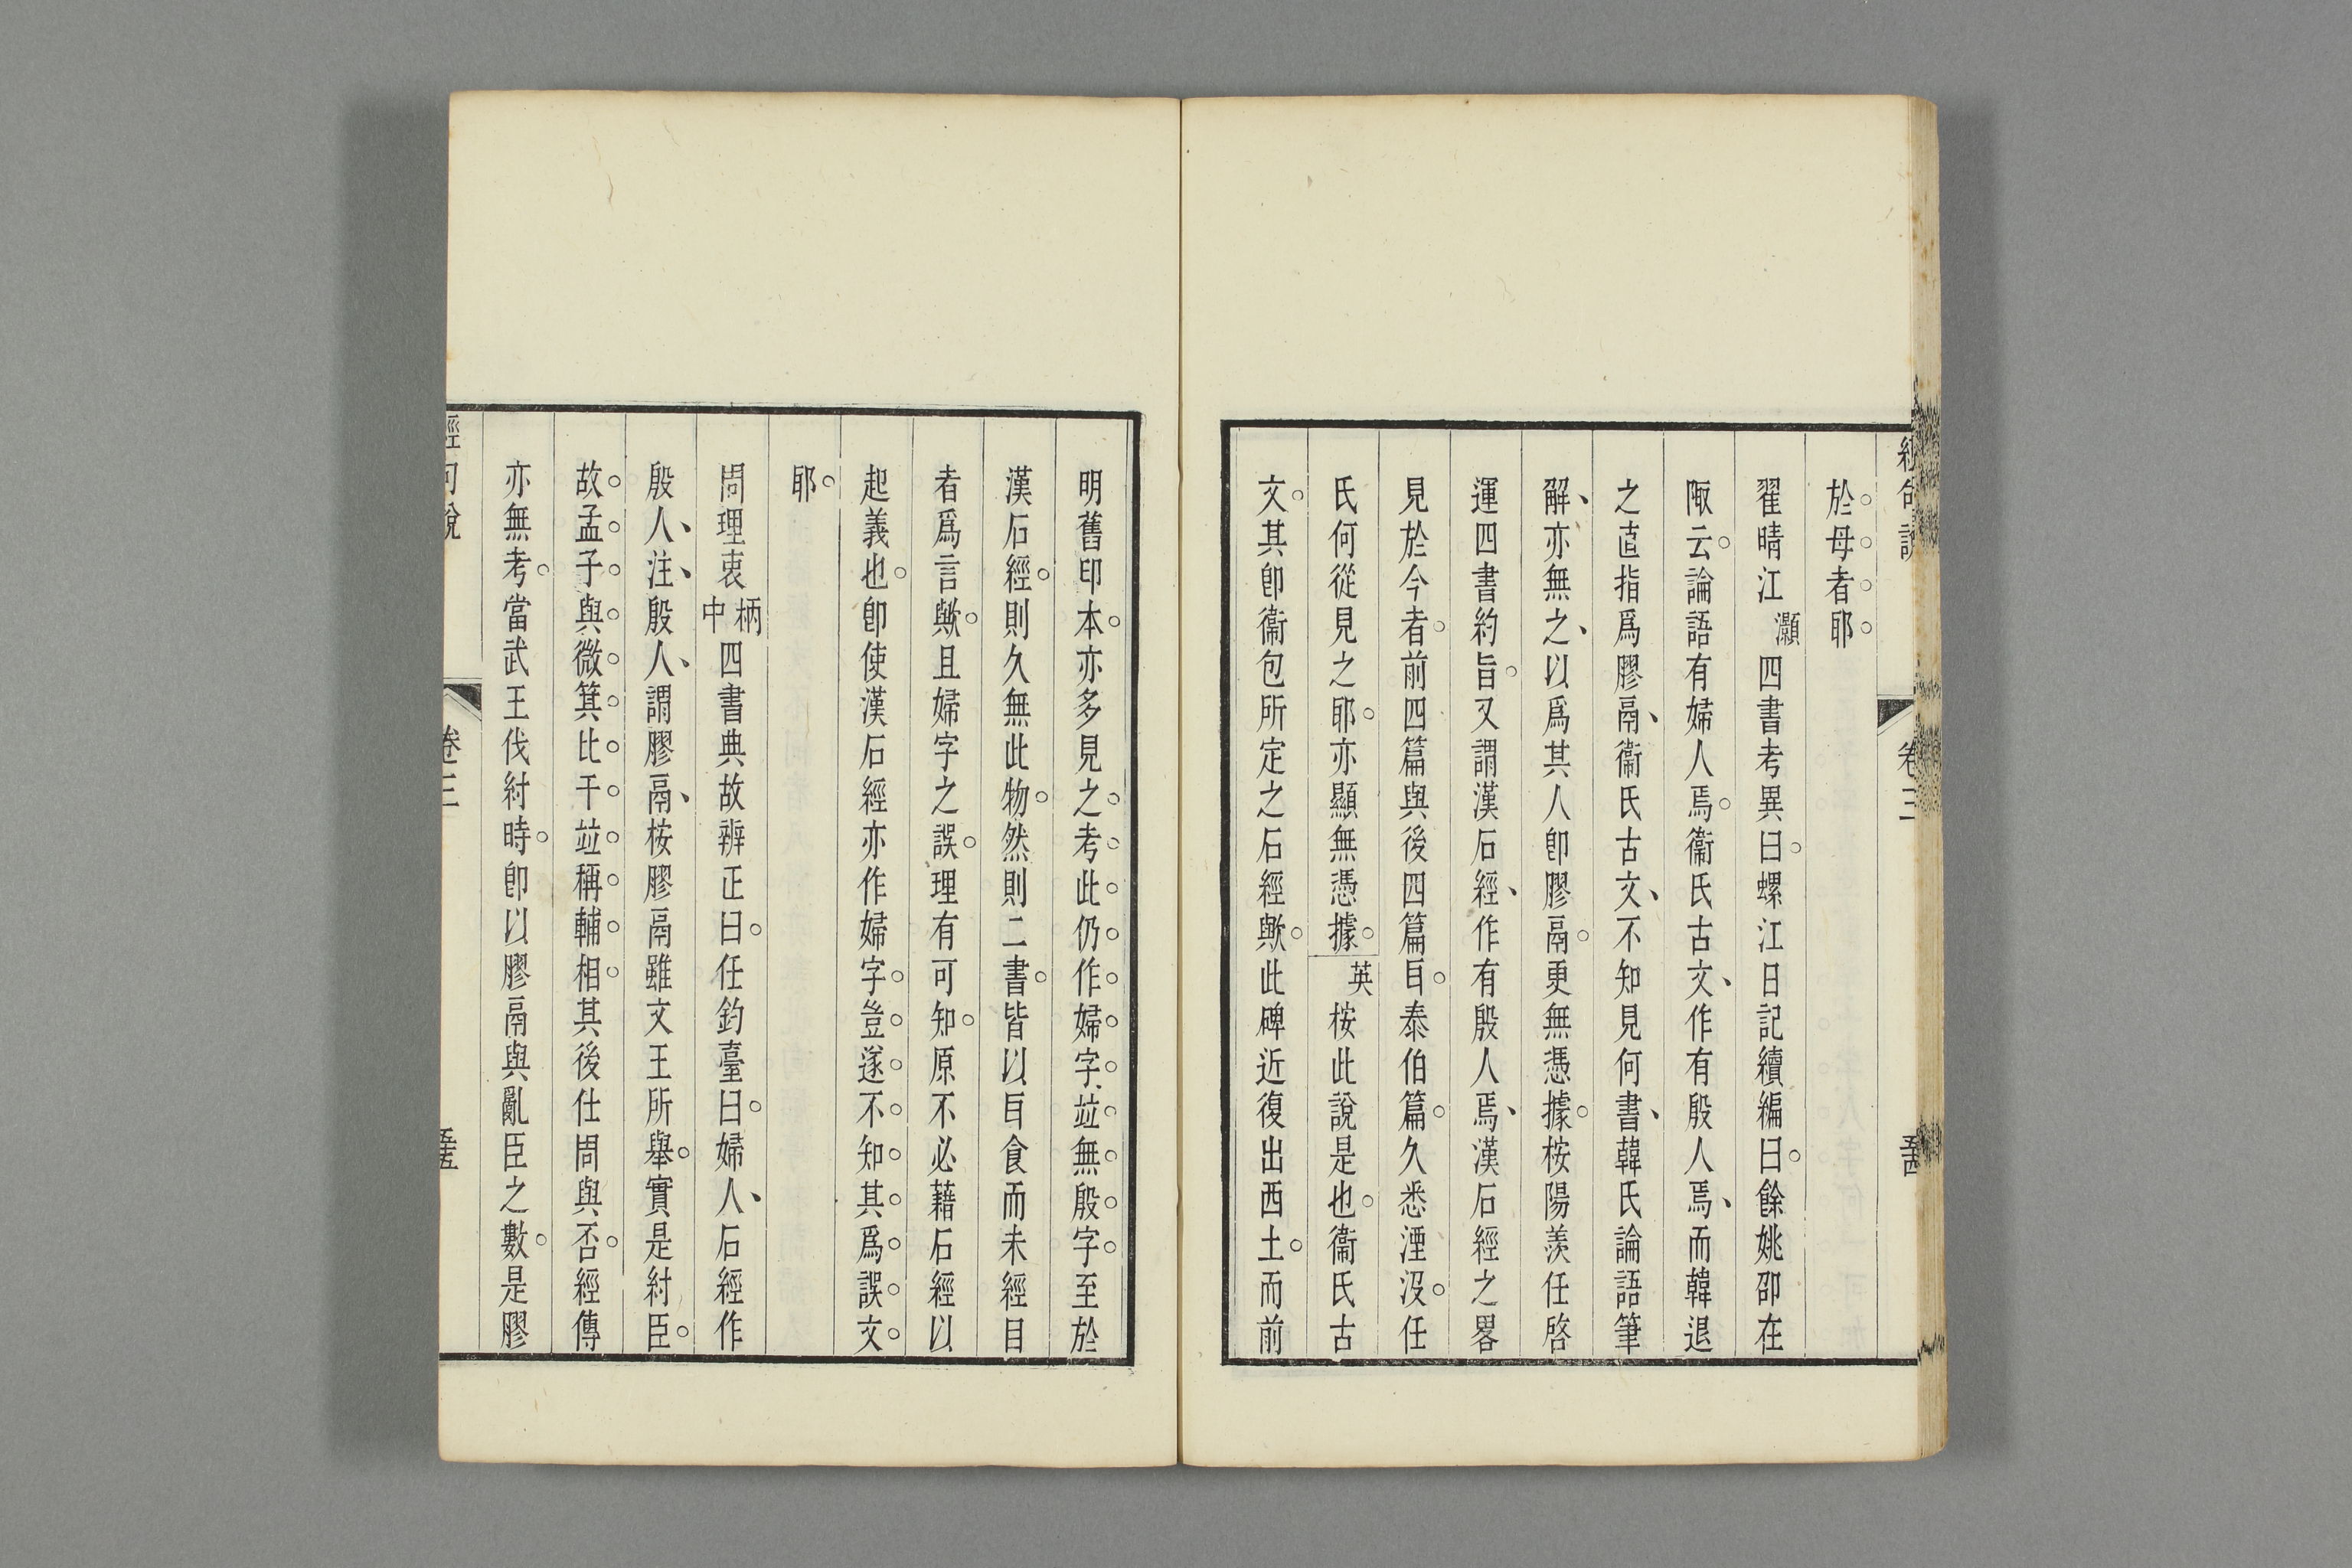 經句說
卷三
於母者耶
翟晴江灝四書考異曰螺江日記續編曰餘姚邵在
陬云論語有婦人焉衞氏古文作有殷人焉而韓退
之直指爲膠鬲衞氏古文不知見何書韓氏論語筆
解亦無之以爲其人卽膠鬲更無憑據桉陽羨任啓
運四書約旨又謂漢石經作有殷人焉漢石經之畧
見於今者前四篇與後四篇自泰伯篇久悉湮沒任
氏何從見之耶亦顯無憑據英桉此說是也衞氏古
文其卽衞包所定之石經歟此碑近復出西土而前
明舊印本亦多見之考此仍作婦字竝無殷字至於
漢石經則久無此物然則二書皆以耳食而未經目
者爲言歟且婦字之誤理有可知原不必藉石經以
起義也卽使漢石經亦作婦字豈遂不知其爲誤文
耶
周理衷柄中四書典故辨正曰任釣臺曰婦人石經作
殷人注殷人謂膠鬲桉膠鬲雖文王所舉實是紂臣
故孟子與微箕比干竝稱輔相其後仕周與否經傳
亦無考當武王伐紂時卽以膠鬲與亂臣之數是膠
經句說
卷三